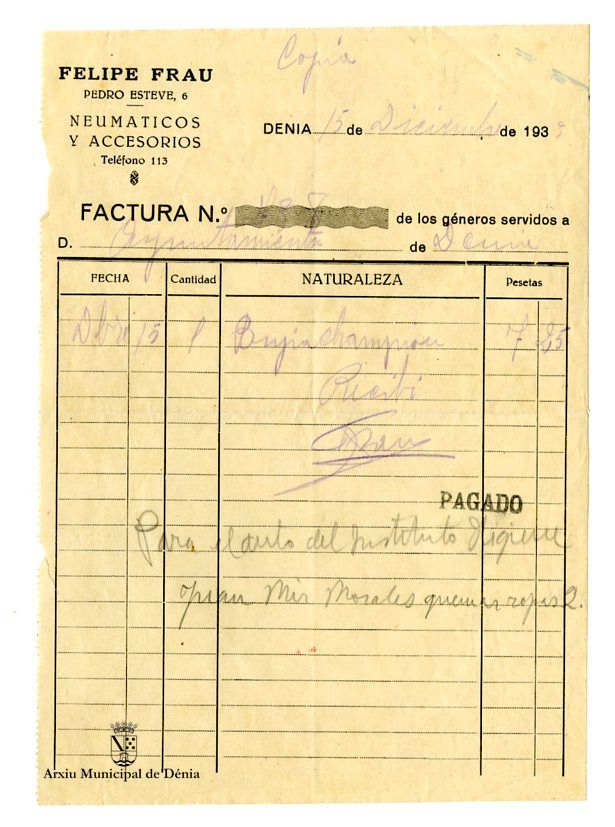 Copia
FELIPE FRAU
PEDRO ESTEVE, 6
NEUMATICOS
Y ACCESORIOS
Teléfono 113
DENIA 15 de Diciembre de 193
FACTURA N.º de los géneros servidos a
D. Ayuntamiento de Denia
FECHA Cantidad NATURALEZA Pesetas
Dbre 15 1 Bujia champion 7 25
Recibi
Frau
PAGADO
Para el auto del Instituto Higiene
Juan Mir Morales quemar ropas 2.
Arxiu Municipal de Dénia